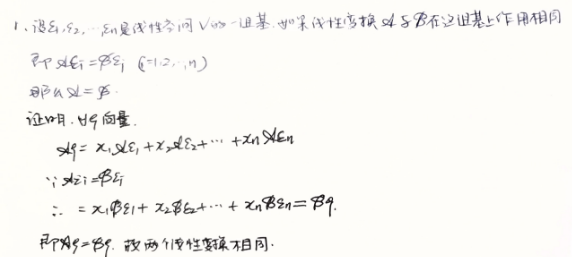 1、设ε₁,ε₂,…εn是线性空间V的一组基.如果线性变换𝒜与ℬ在这组基上作用相同
即𝒜εi=ℬεi (i=1.2,…,n)
那么𝒜=ℬ.
证明.∀ξ向量.
𝒜ξ= x₁𝒜ε₁+x₂𝒜ε₂+…+xn𝒜εn
∵𝒜εi=ℬεi
∴ = x₁ℬε₁+x₂ℬε₂+…+xnℬεn=ℬξ.
即𝒜ξ=ℬξ. 故两个线性变换相同.